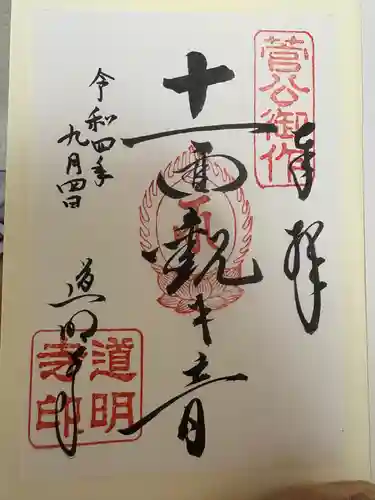 奉拝
菅公御作
十一面観世音
令和四年
九月四日
道明寺
道明寺印